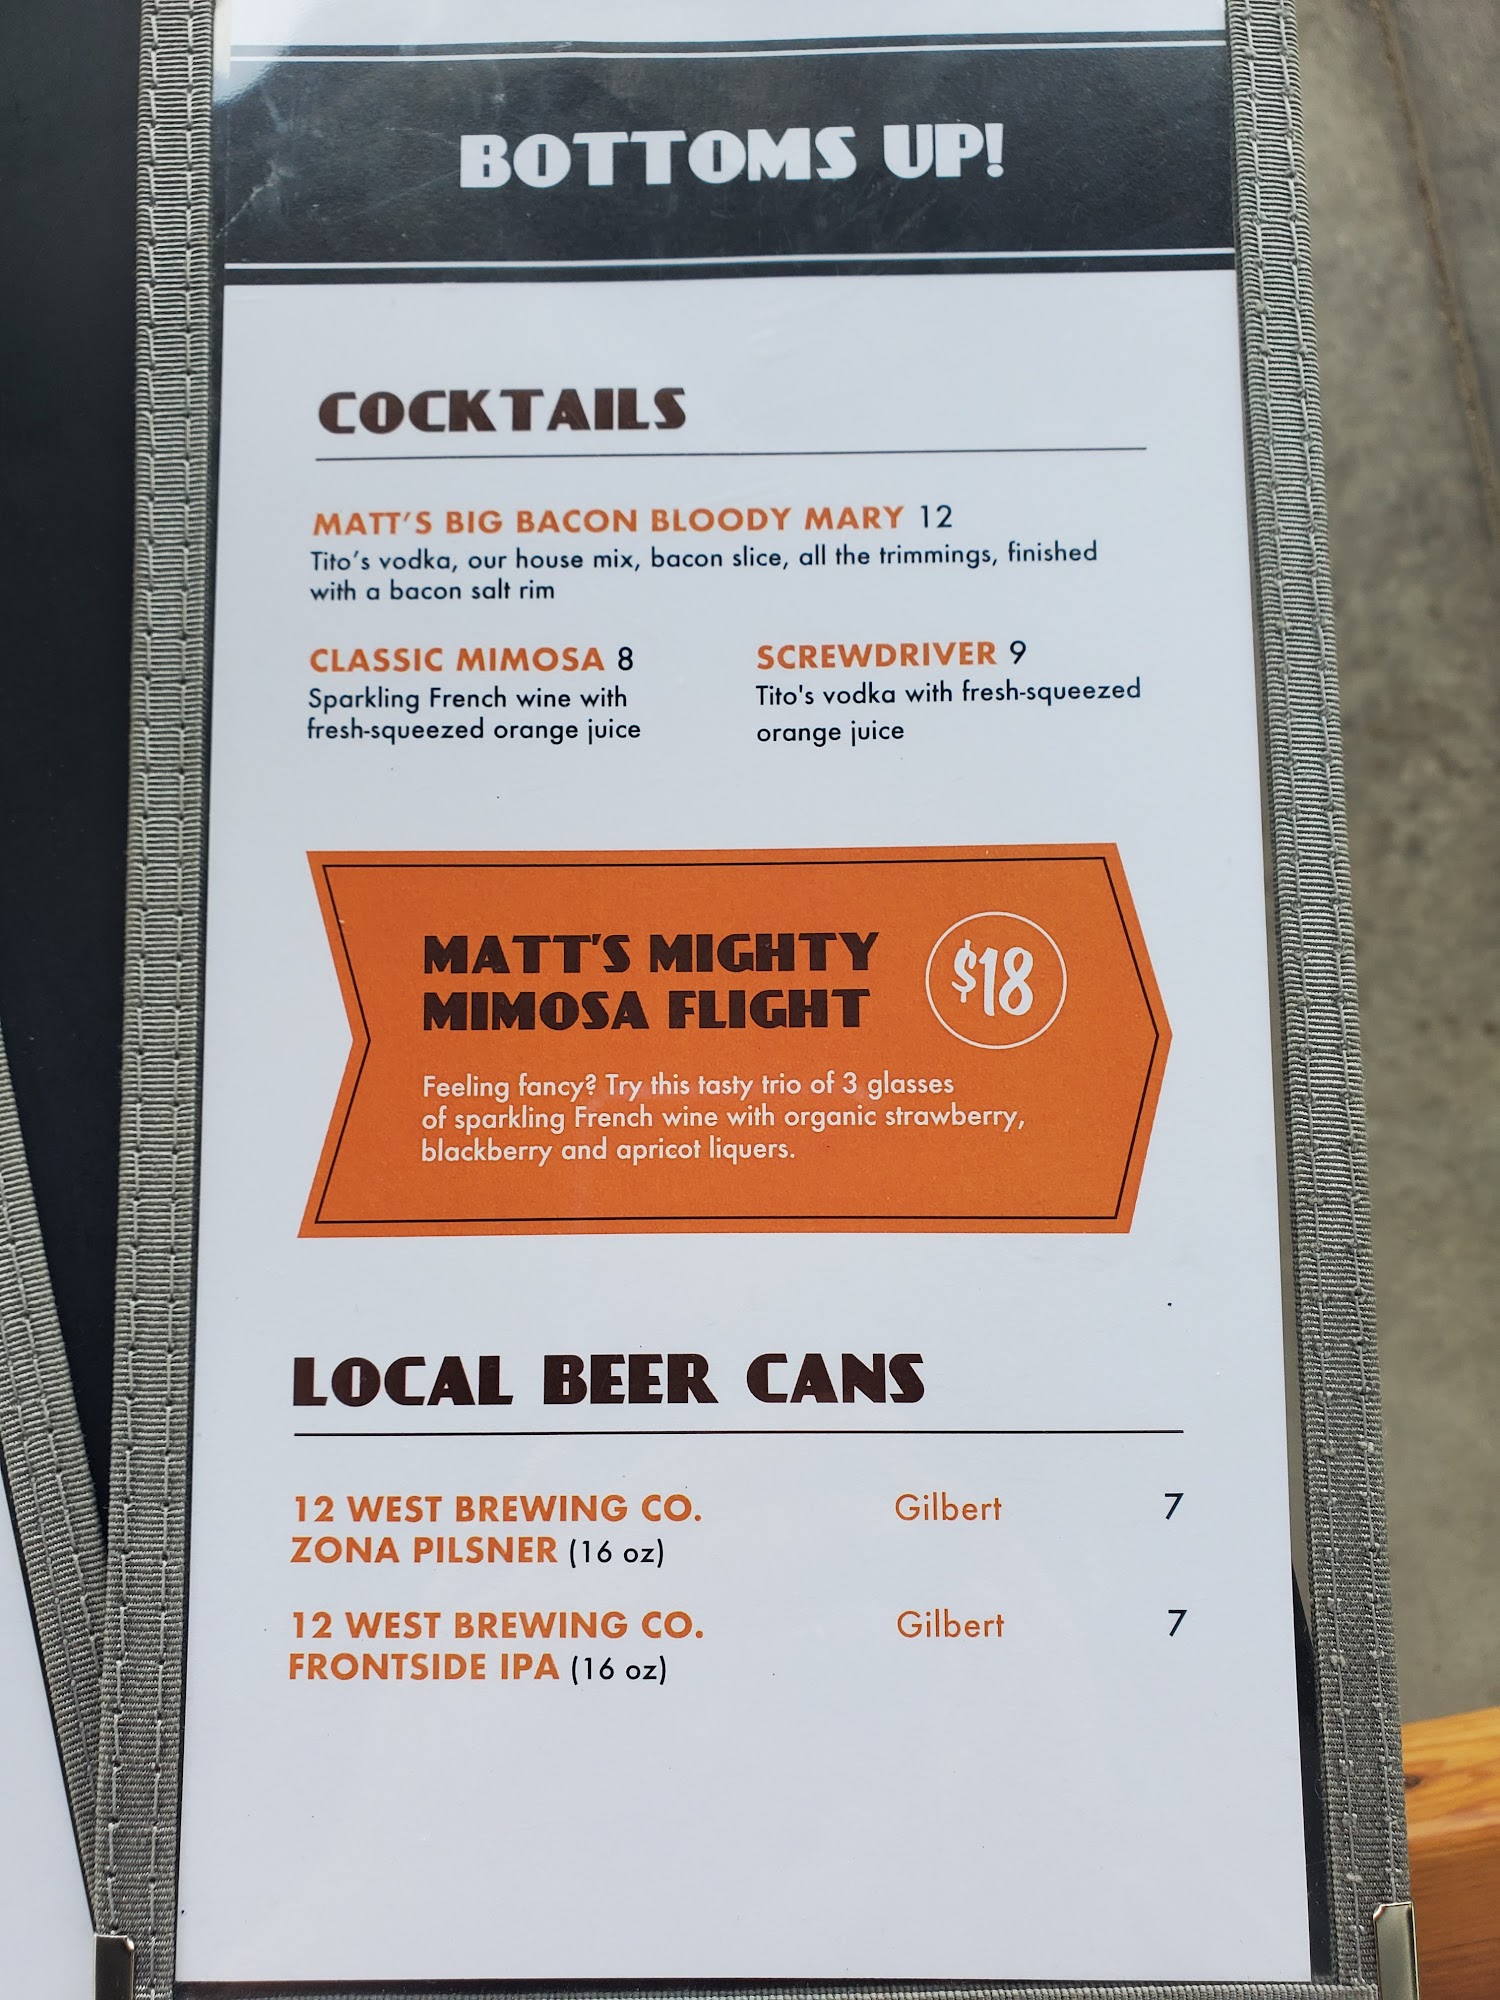 BOTTOMS UP!
COCKTAILS
MATT'S BIG BACON BLOODY MARY 12
Tito's vodka, our house mix, bacon slice, all the trimmings, finished
with a bacon salt rim
CLASSIC MIMOSA 8
Sparkling French wine with
fresh-squeezed orange juice
SCREWDRIVER 9
Tito's vodka with fresh-squeezed
orange juice
MATT'S MIGHTY
MIMOSA FLIGHT
$18
Feeling fancy? Try this tasty trio of 3 glasses
of sparkling French wine with organic strawberry,
blackberry and apricot liquers.
LOCAL BEER CANS
12 WEST BREWING CO. Gilbert 7
ZONA PILSNER (16 oz)
12 WEST BREWING CO. Gilbert 7
FRONTSIDE IPA (16 oz)